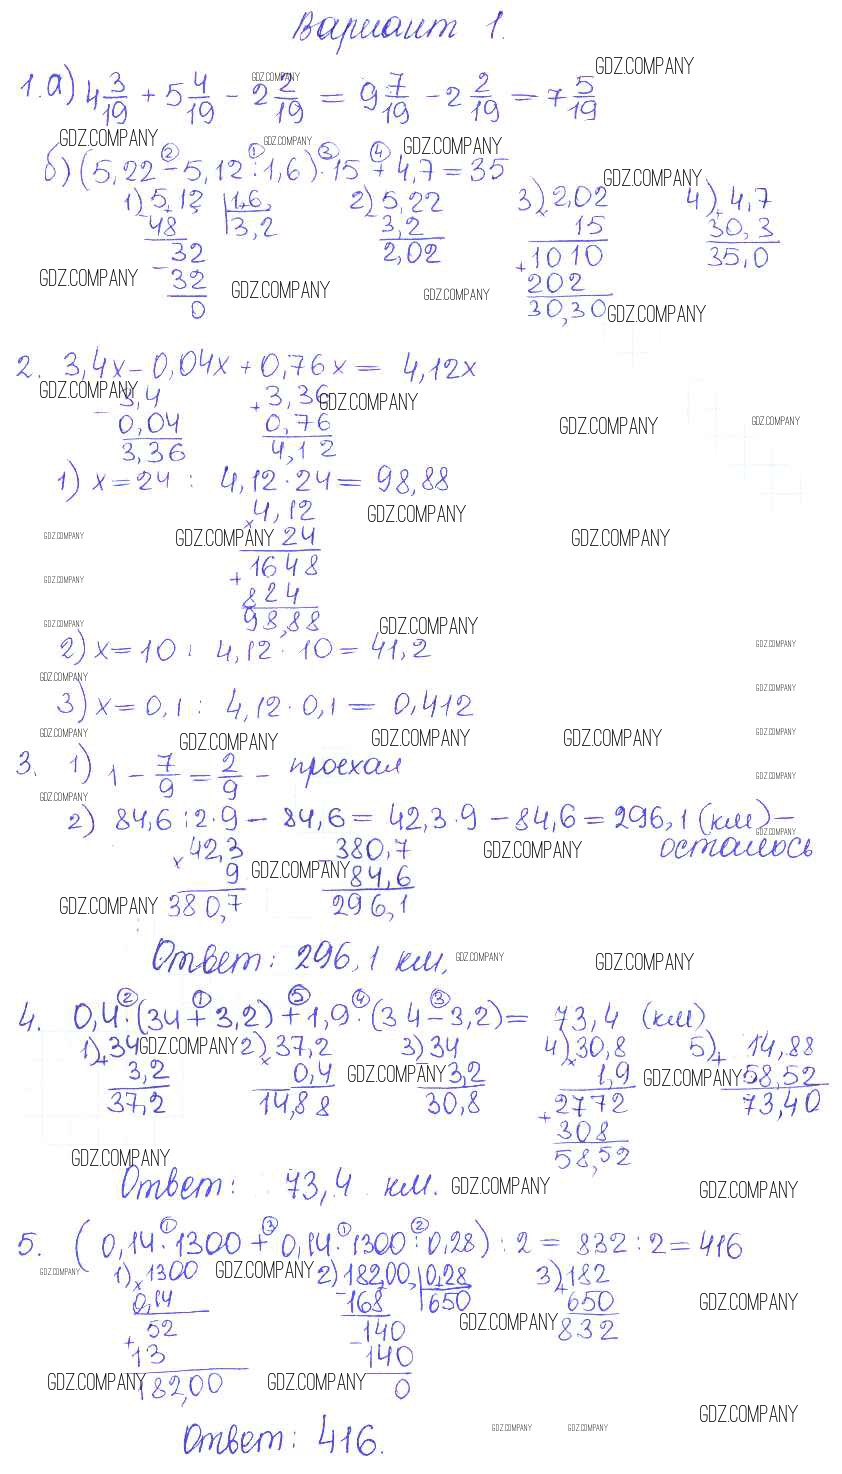 Вариант 1.
1. а) 4 3/19 + 5 4/19 - 2 2/19 = 9 7/19 - 2 2/19 = 7 5/19
② ① ③ ④
б) (5,22 - 5,12 : 1,6) · 15 + 4,7 = 35
1) 5,12 | 1,6 2) 5,22 3) 2,02 4) 4,7
- 48 3,2 - 3,2 × 15 + 30,3
32 2,02 + 1010 35,0
- 32 202
0 30,30
2. 3,4x - 0,04x + 0,76x = 4,12x
3,4 + 3,36
- 0,04 0,76
3,36 4,12
1) x = 24 : 4,12 · 24 = 98,88
× 4,12
24
+ 1648
824
98,88
2) x = 10 : 4,12 · 10 = 41,2
3) x = 0,1 : 4,12 · 0,1 = 0,412
3. 1) 1 - 7/9 = 2/9 - проехал
2) 84,6 : 2 · 9 - 84,6 = 42,3 · 9 - 84,6 = 296,1 (км) -
осталось
× 42,3 - 380,7
9 84,6
380,7 296,1
Ответ: 296,1 км.
② ① ⑤ ④ ③
4. 0,4 · (34 + 3,2) + 1,9 · (34 - 3,2) = 73,4 (км)
1) + 34 2) × 37,2 3) - 34 4) × 30,8 5) + 14,88
3,2 0,4 3,2 1,9 58,52
37,2 14,88 30,8 + 2772 73,40
308
58,52
Ответ: 73,4 км.
① ③ ① ②
5. (0,14 · 1300 + 0,14 · 1300 : 0,28) : 2 = 832 : 2 = 416
1) × 1300 2) 182,00 | 0,28 3) + 182
0,14 - 168 650 650
+ 52 140 832
13 - 140
182,00 0
Ответ: 416.
GDZ.COMPANY